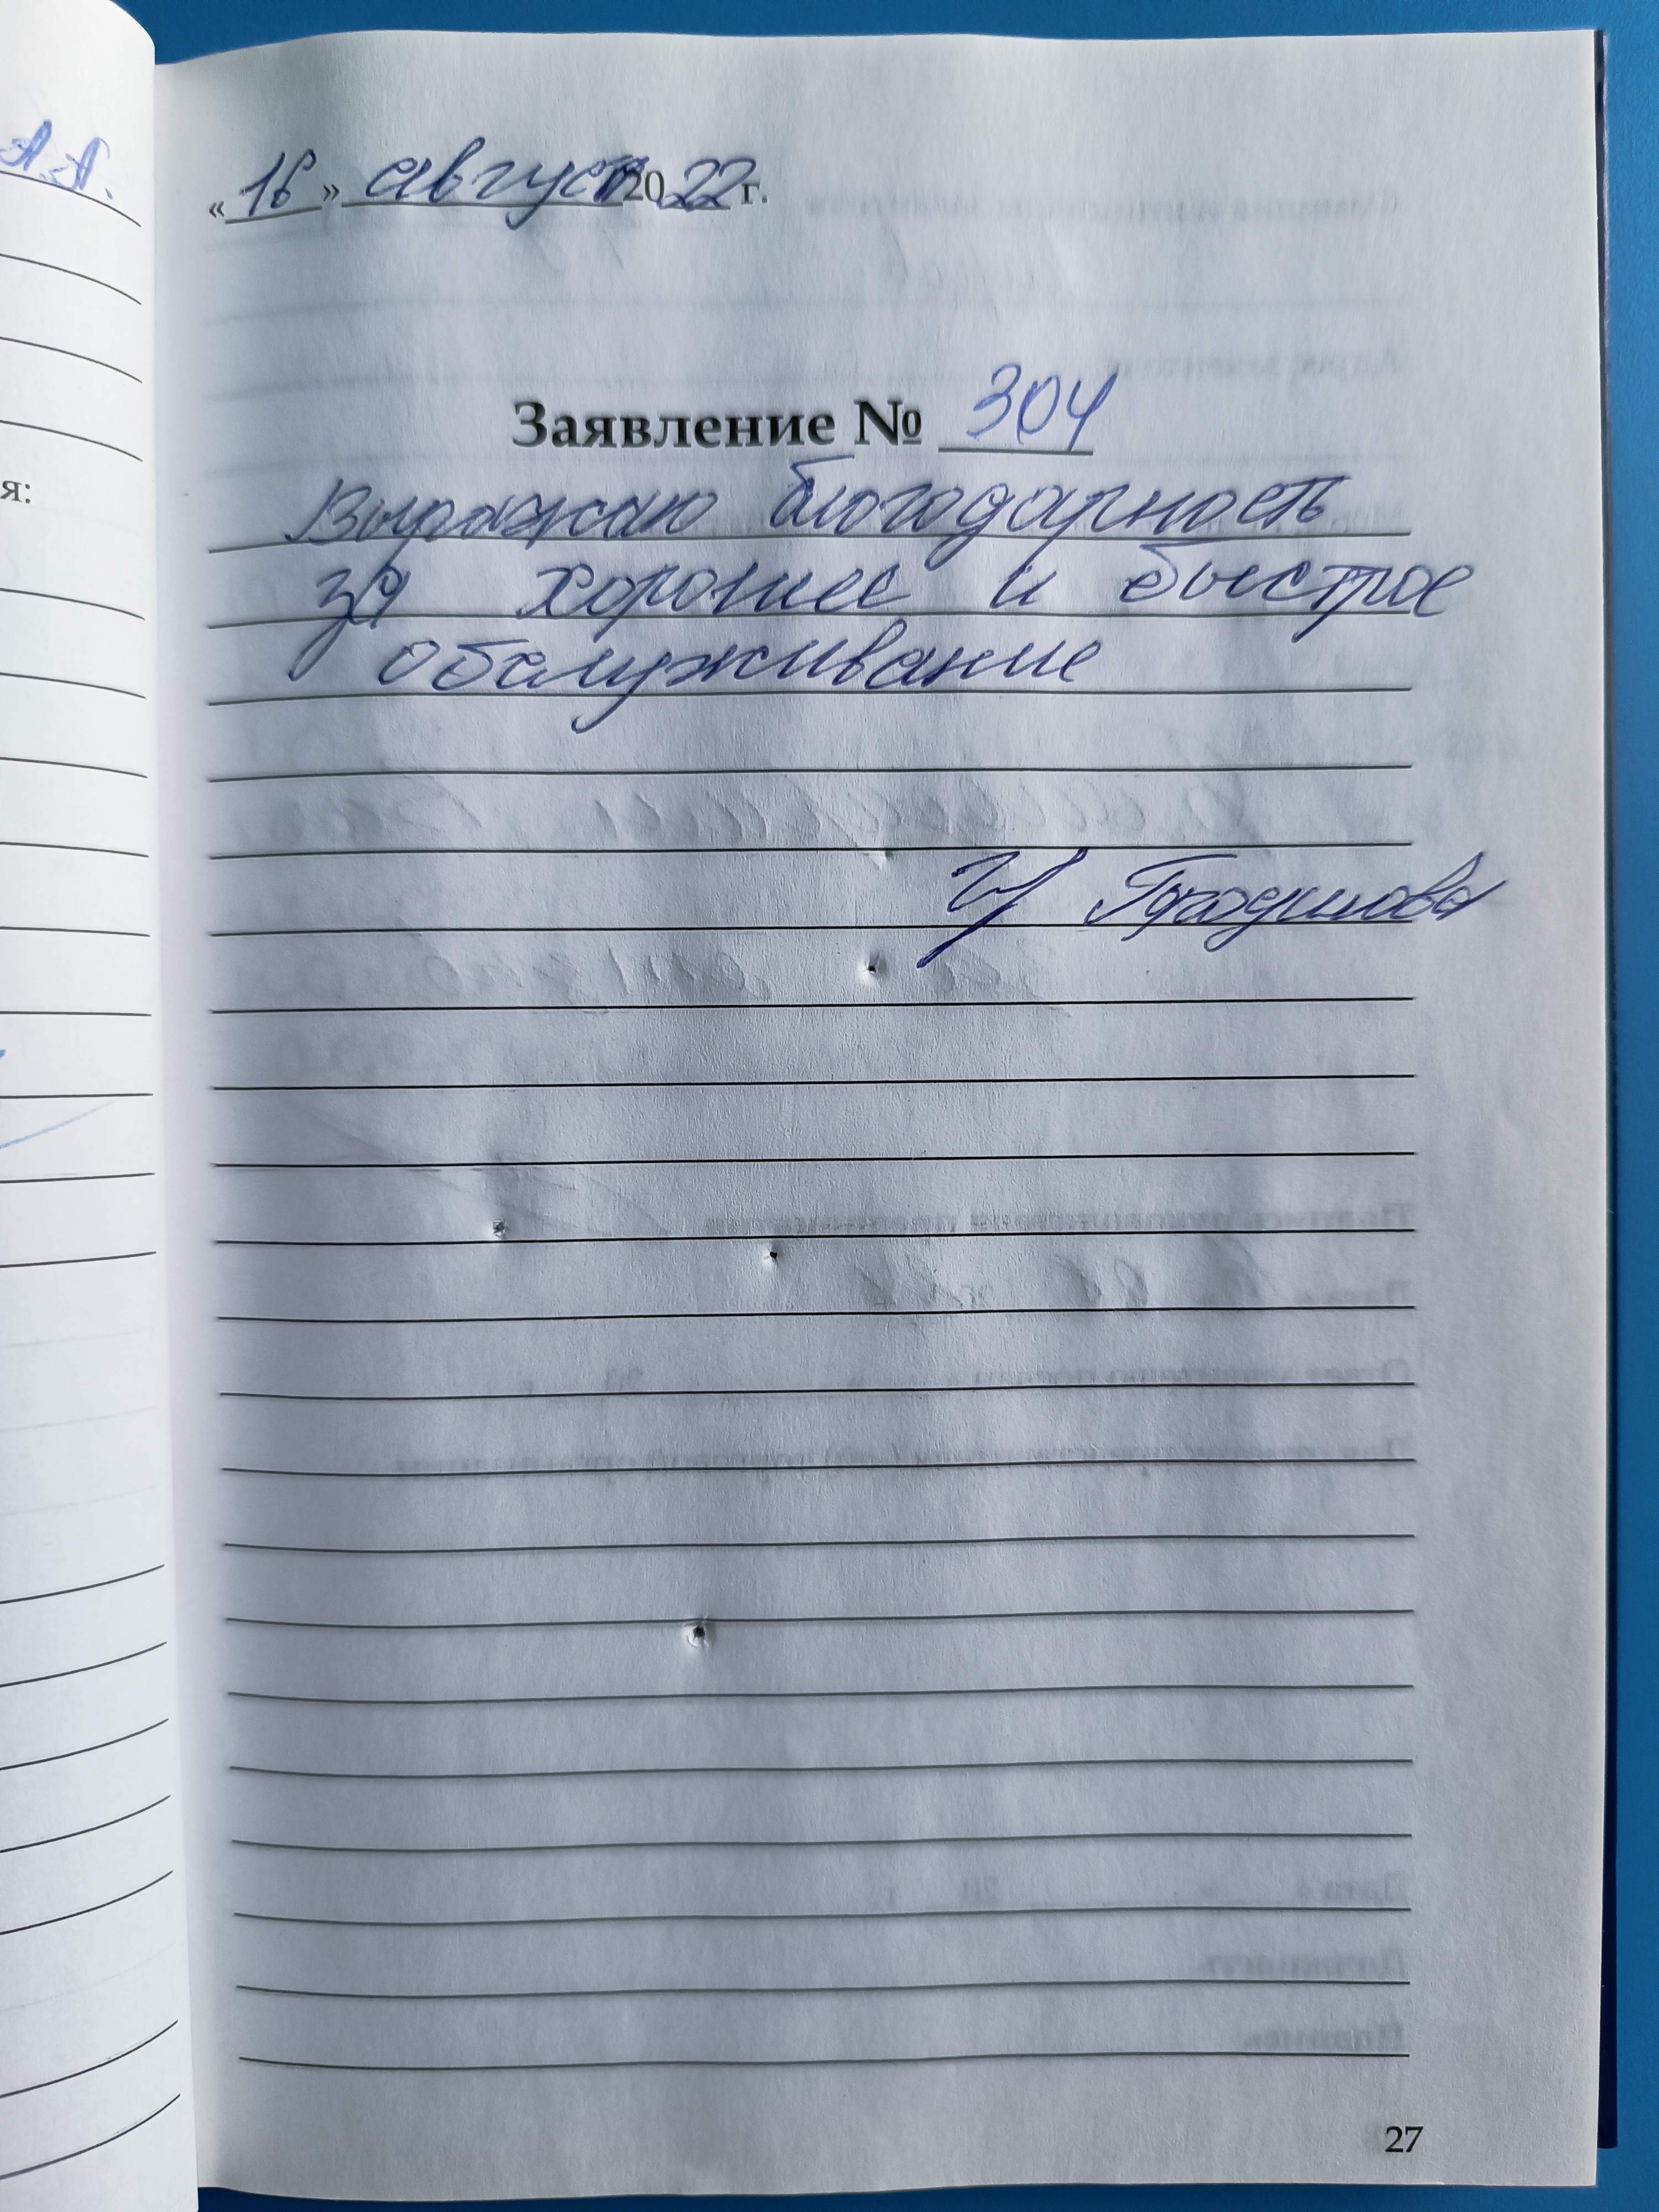 А.А.
я:
«16» август 2022 г.
Заявление № 304
Выражаю благодарность
за хорошее и быстрое
обслуживание
27